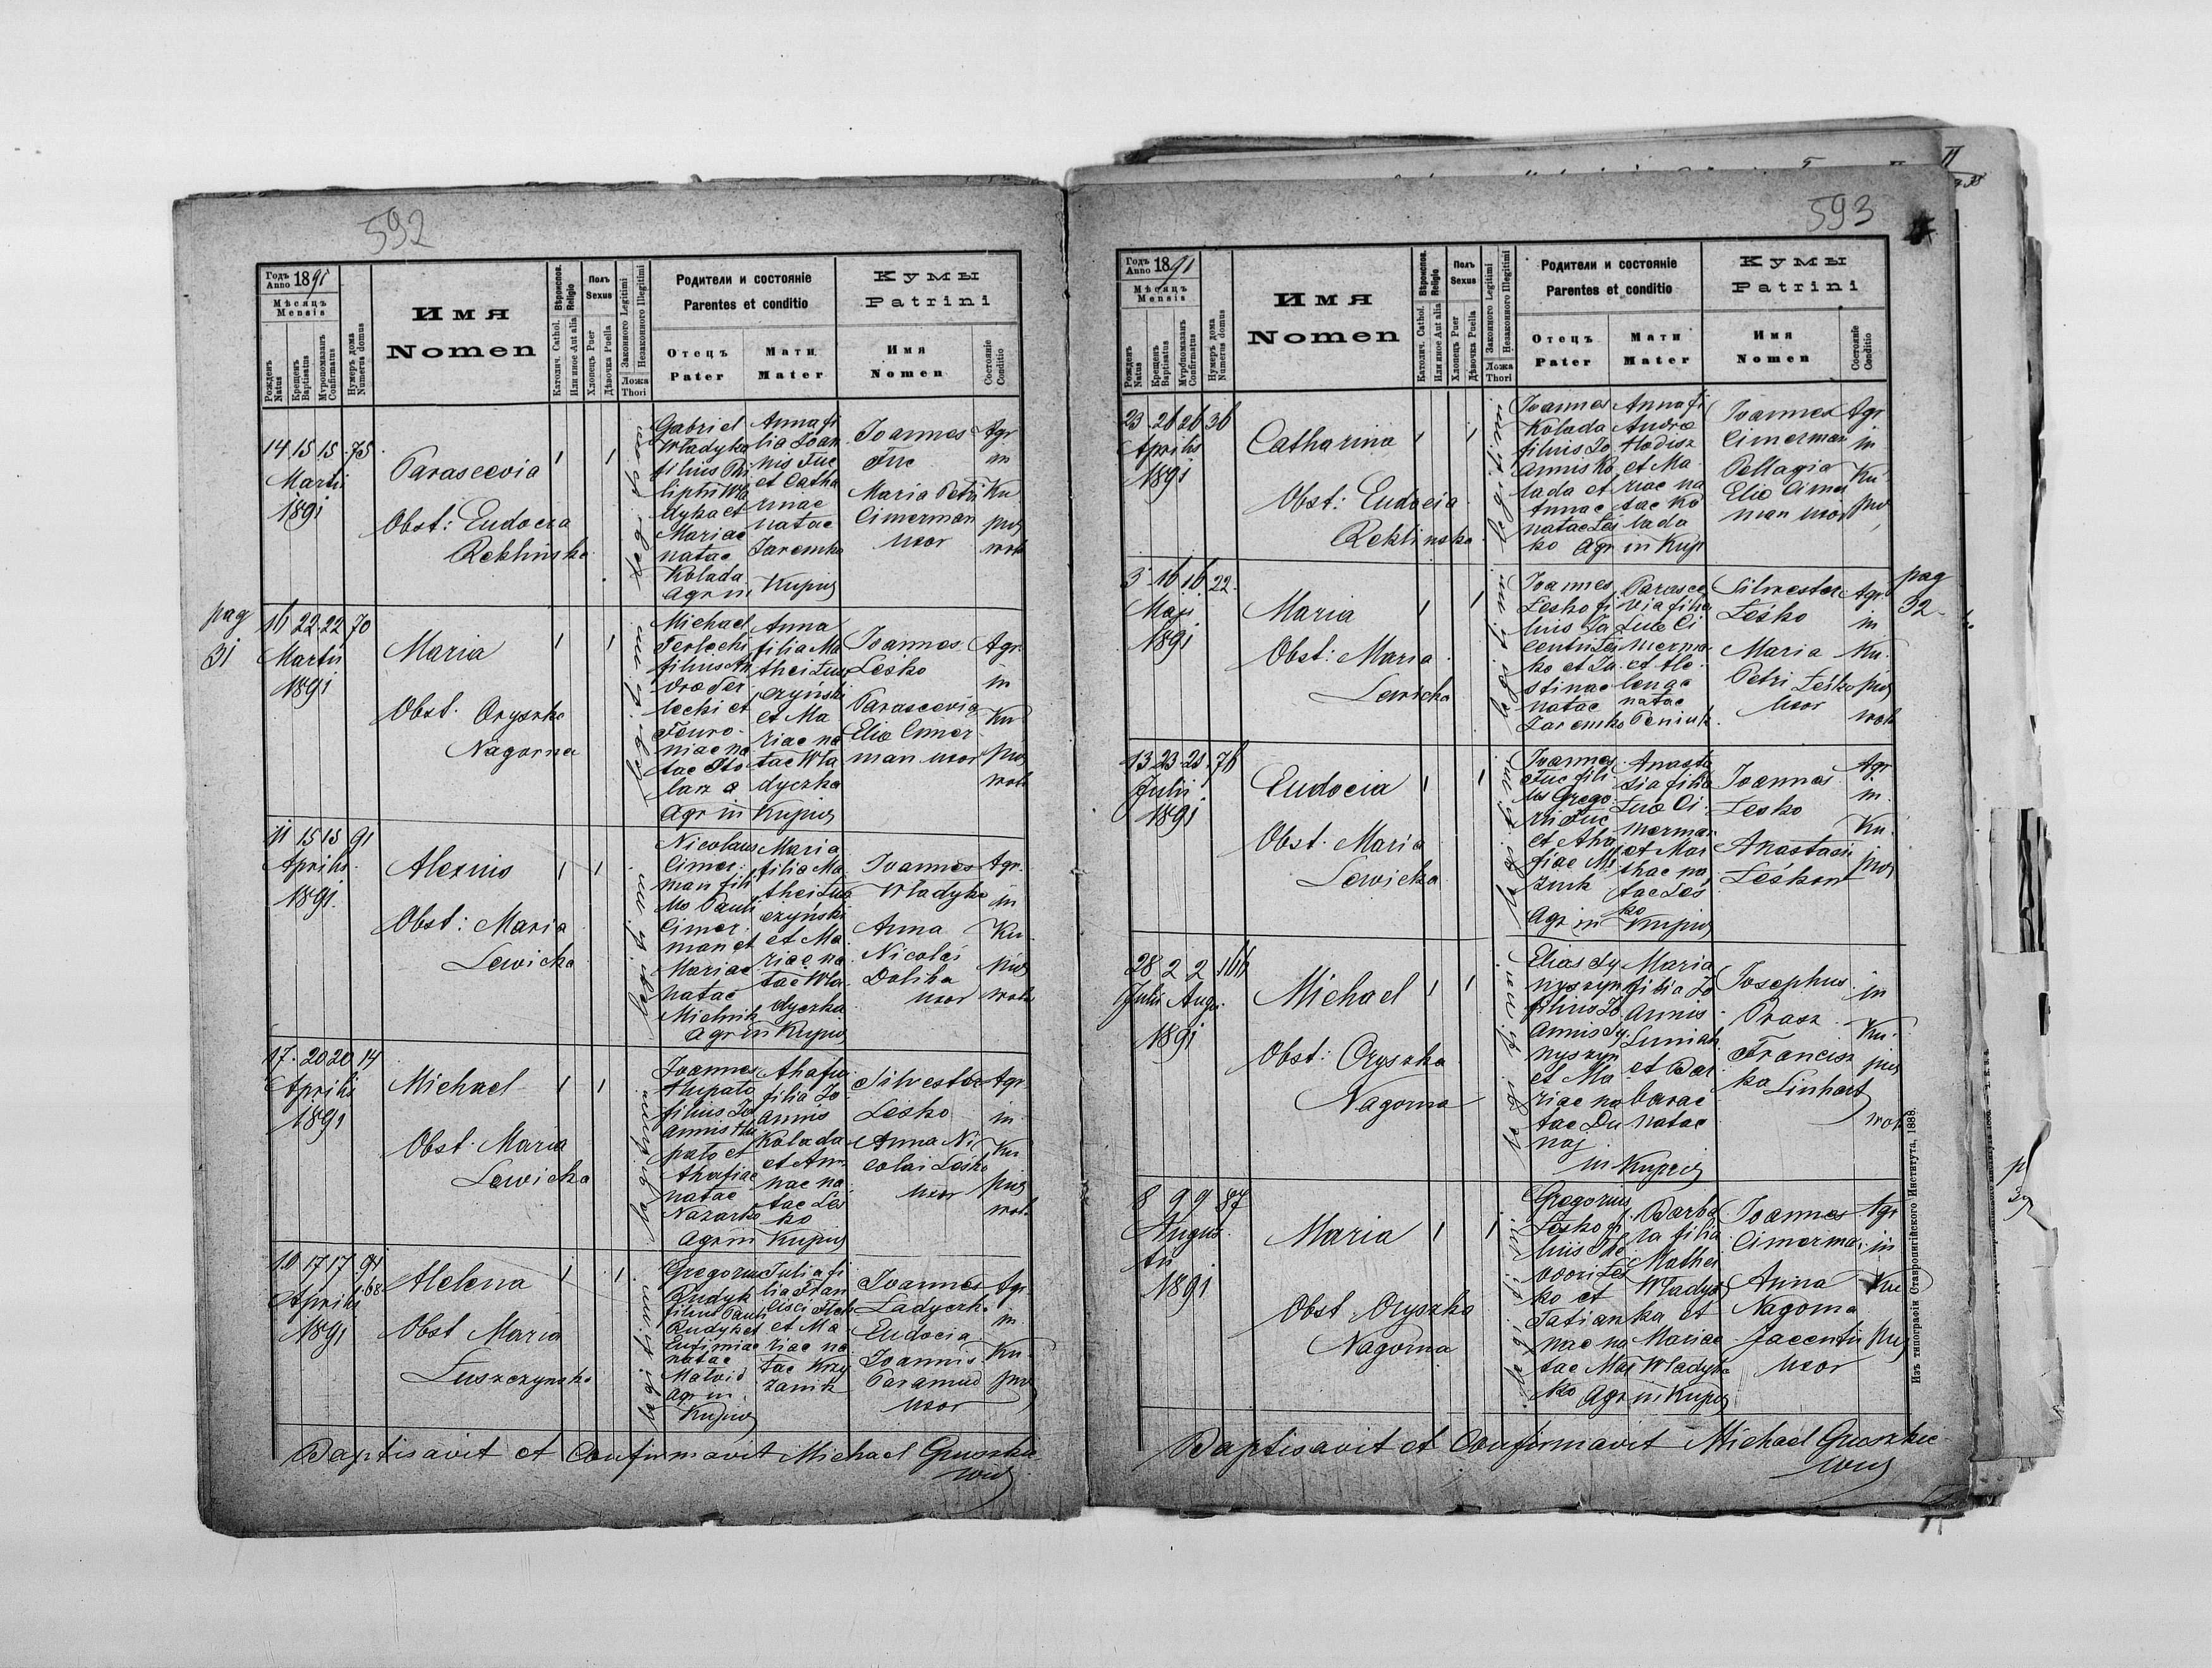 592
Годъ Anno 1891
Мѣсяцъ Mensis
Рожденъ Natus
Крещенъ Baptisatus
Мѵропомазанъ Confirmatus
Нумеръ дома Numerus domus
Имя
Nomen
Вѣроисповѣд. Religio
Католич. Cathol.
Или иное Aut alia
Полъ Sexus
Хлопецъ Puer
Дѣвочка Puella
Законного Legitimi
Незаконного Illegitimi
Ложа Thori
Родители и состояніе
Parentes et conditio
Отецъ Pater
Мати Mater
Кумы
Patrini
Имя Nomen
Состояніе Conditio
14 15 15 75
Martii
1891
Parascevia
Obst: Eudocia
Reklinska
Gabriel
Wladyka
filius Phi
lippi Wla
dyka et
Mariae
natae
Kolada
Agr in
Anna fi
lia Joan
nis Fuc
et Catha
rinae
natae
Jaremko
Kupnow
Joannes
Fuc
Maria Petri
Cimerman
uxor
Agr
in
Ku
pno
wola
pag
31
16 22 22 70
Martii
1891
Maria
Obst. Oryszka
Nagorna
Michael
Terlecki
filius An
dreæ Ter
lecki et
Feuro
niae na
tae Sto
larz
Agr in
Anna
filia Ma
thei Lusz
czyński
et Ma
riae na
tae Wla
dyczka
Kupnow
Joannes
Leśko
Parascevia
Eliæ Cimer
man uxor
Agr.
in
Ku
pno
wola
11 15 15 91
Aprilis
1891
Alexius
Obst: Maria
Lewicka
Nicolaus
Cimer
man fili
us Pauli
Cimer
man et
Mariae
natae
Mielnik
Agr in
Maria
filia Ma
thei Lusz
czyński
et Ma
riae na
tae Wla
dyczka
Kupnow
Joannes
Wladyka
Anna
Nicolai
Doliha
uxor
Agr.
in
Ku
pno
wola
17 20 20 14
Aprilis
1891
Michael
Obst. Maria
Lewicka
Joannes
filius Jo
annis
et
Ahafiae
natae
Nazarko
Agr in
Ahafia
filia Jo
annis
Kolada
et An
nae na
tae Leś
ko
Kupnow
Silvester
Leśko
Anna Ni
colai Leśko
uxor
Agr.
in
Ku
pno
wola
10 17 17 91
168
Aprilis
1891
Helena
Obst Maria
Luszczynska
Gregorius
Rudyk
filius Pauli
Rudyk et
Eufimiae
natae
Agr in
Kupnow
Julia fi
lia Fran
cisci
et Ma
riae na
tae Krzy
zanik
Joannes
Ladyczka
Eudocia
Joannis
uxor
Agr
in
Ku
pno
Baptisavit et Confirmavit Michael Gruszkie
wicz
593
Годъ Anno 1891
Мѣсяцъ Mensis
Рожденъ Natus
Крещенъ Baptisatus
Мѵропомазанъ Confirmatus
Нумеръ дома Numerus domus
Имя
Nomen
Вѣроисповѣд. Religio
Католич. Cathol.
Или иное Aut alia
Полъ Sexus
Хлопецъ Puer
Дѣвочка Puella
Законного Legitimi
Незаконного Illegitimi
Ложа Thori
Родители и состояніе
Parentes et conditio
Отецъ Pater
Мати Mater
Кумы
Patrini
Имя Nomen
Состояніе Conditio
23 26 26 36
Aprilis
1891
Catharina
Obst: Eudocia
Reklinska
Joannes
Kolada
filius Jo
annis Ko
lada et
Annae
natae Leś
ko Agr
Anna fi
Andreæ
et Ma
riae na
tae Ko
lada
in Kupn
Joannes
Cimerman
Pellagia
Eliæ Cimer
man uxor
Agr
in
Ku
pno
3 16 16 22
Maji
1891
Maria
Obst: Maria
Lewicka
Joannes
Leśko fi
lius Ja
centii Leś
ko et Ju
stinae
natae
Jaremko
Parasce
via filia
Lucæ Ci
merman
et He
lenae
natae
Silvester
Leśko
Maria
Petri Leśko
uxor
Agr
in
Ku
pno
wola
pag
32
13 23 23 76
Julii
1891
Eudocia
Obst. Maria
Lewicka
Joannes
Fuc fili
us Grego
rii Fuc
et Aha
fiae
Agr in
Anasta
sia filia
Lucæ Ci
merman
et Mar
thae na
tae Leś
ko
Kupnow
Joannes
Leśko
Anastasia
Leśkow
Agr
in
Ku
pno
28 2 2 166
Julii Augu
1891
Michael
Obst: Oryszka
Nagorna
Elias Dy
nyszyn
filius Jo
annis Dy
nyszyn
et Ma
riae na
tae Du
naj
Maria
filia Jo
annis
et Bar
barae
natae
in Kupnow
Josephus
Prasz
Francisz
ka Linhart
in
Ku
pno
wola
8 9 9 87
Augus
ti
1891
Maria
Obst Oryszka
Nagorna
Gregorius
Leśko fi
lius The
odori Leś
ko et
Tatian
nae na
tae Maś
ko Agr
Barba
ra filia
Mathei
Wladyc
ka et
Mariae
Wladyka
in Kupnow
Joannes
Cimerman
Anna
Nagorna
Jacentii
uxor
Agr
in
Ku
pno
Baptisavit et Confirmavit Michael Gruszkie
wicz
Изъ типографіи Ставропигійского Института, 1888.